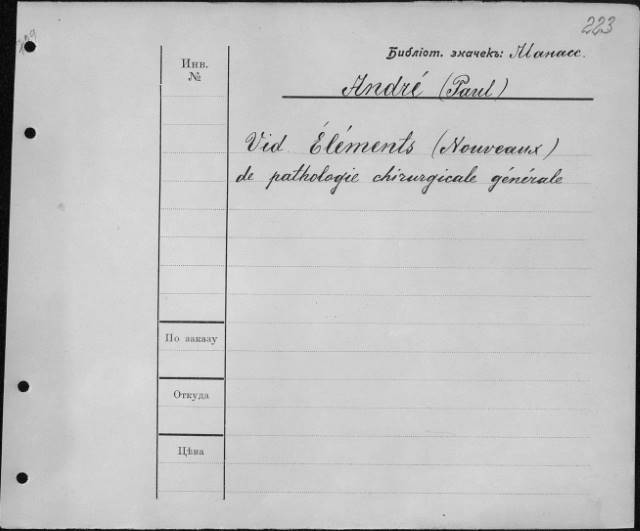 223
Библіот. значекъ: Манасс.
Инв.
№
André (Paul)
Vid Éléments (Nouveaux)
de pathologie chirurgicale générale
По заказу
Откуда
Цѣна